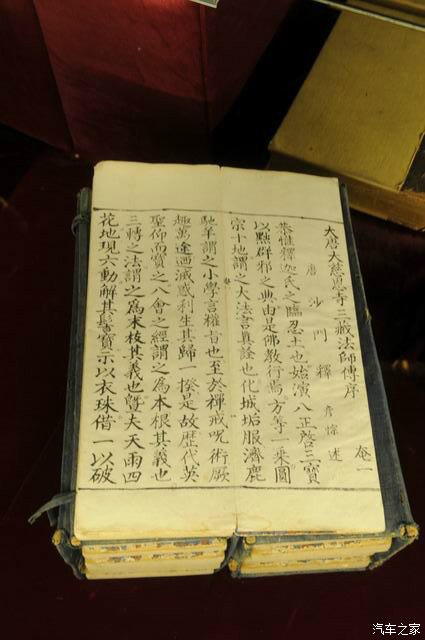 大唐大慈恩寺三藏法師傳序 卷一
唐沙門釋彥悰述
恭惟釋迦氏之臨忍土也始演八正啓三寶
以黜群邪之典由是佛教行焉方等一乘圓
宗十地謂之大法言真詮也化城垢服濟鹿
馳羊謂之小學言權旨也至於禪戒呪術厥
趣萬途而滅惑利生其歸一揆是故歷代英
聖仰而寶之八會之經謂之為本根其義也
三轉之法謂之為末枝其義也暨夫天雨四
花地現六動解其髻寶示以衣珠借一以破
汽车之家